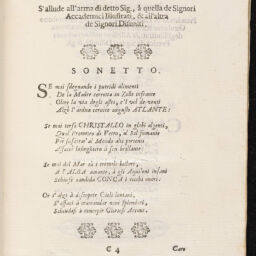 S'allude all'arma di detto Sig., à quella de Signori
Accademici Illustrati, & all'altra
de Signori Disuniti.
SONETTO.
SE mai sdegnando i putridi alimenti
De la Madre corrotta in Zolle infrante
Oltre la via degli astri, e'l vol de venti
Alzò l'ardua cervice augusto ATLANTE:
Se mai terso CHRISTALLO in globi algenti,
Qual Prometeo di Vetro, al Sol
Per al Mondo alti portenti
Affacci luminoso il sen brillante:
Se mai del Mar sù i tremoli
A l'ALBA amante, à gli Aquiloni infanti
Schiuse candida CONCA i ricchi
Or s'algi à discoprir Cieli lontani,
S'affacci à tramandar novi splendori,
Schiudasi à concepir Gloriosi Arcani.
C 4
Caro